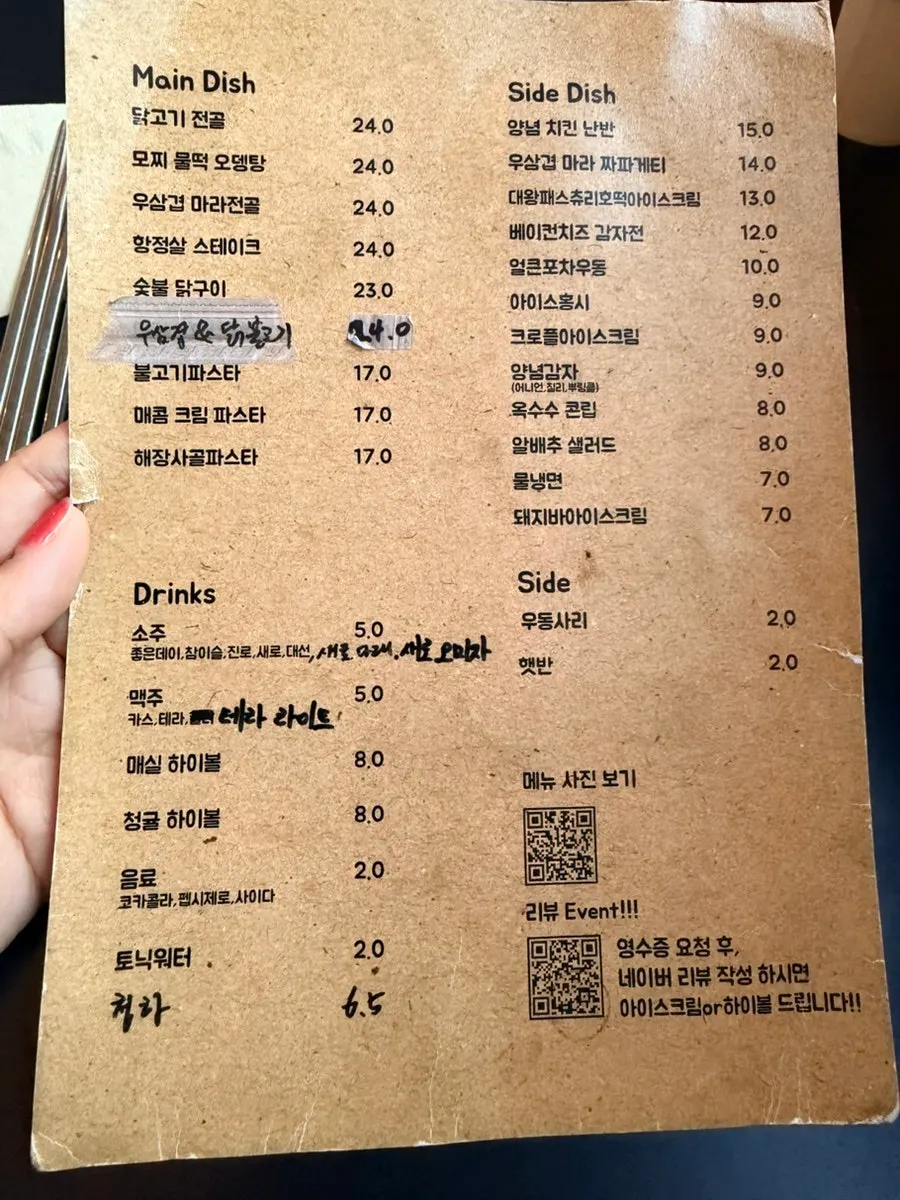 Main Dish
닭고기 전골 24.0
모찌 물떡 오뎅탕 24.0
우삼겹 마라전골 24.0
항정살 스테이크 24.0
숯불 닭구이 23.0
우삼겹 & 닭불고기 24.0
불고기파스타 17.0
매콤 크림 파스타 17.0
해장사골파스타 17.0
Side Dish
양념 치킨 난반 15.0
우삼겹 마라 짜파게티 14.0
대왕패스츄리호떡아이스크림 13.0
베이컨치즈 감자전 12.0
얼큰포차우동 10.0
아이스홍시 9.0
크로플아이스크림 9.0
양념감자 9.0
(어니언,칠리,뿌링클)
옥수수 콘립 8.0
알배추 샐러드 8.0
물냉면 7.0
돼지바아이스크림 7.0
Drinks
소주 5.0
좋은데이,참이슬,진로,새로,대선, 새로 다래, 새로 오미자
맥주 5.0
카스,테라, 테라 라이트
매실 하이볼 8.0
청귤 하이볼 8.0
음료 2.0
코카콜라,펩시제로,사이다
토닉워터 2.0
청하 6.5
Side
우동사리 2.0
햇반 2.0
메뉴 사진 보기
리뷰 Event!!!
영수증 요청 후,
네이버 리뷰 작성 하시면
아이스크림or하이볼 드립니다!!